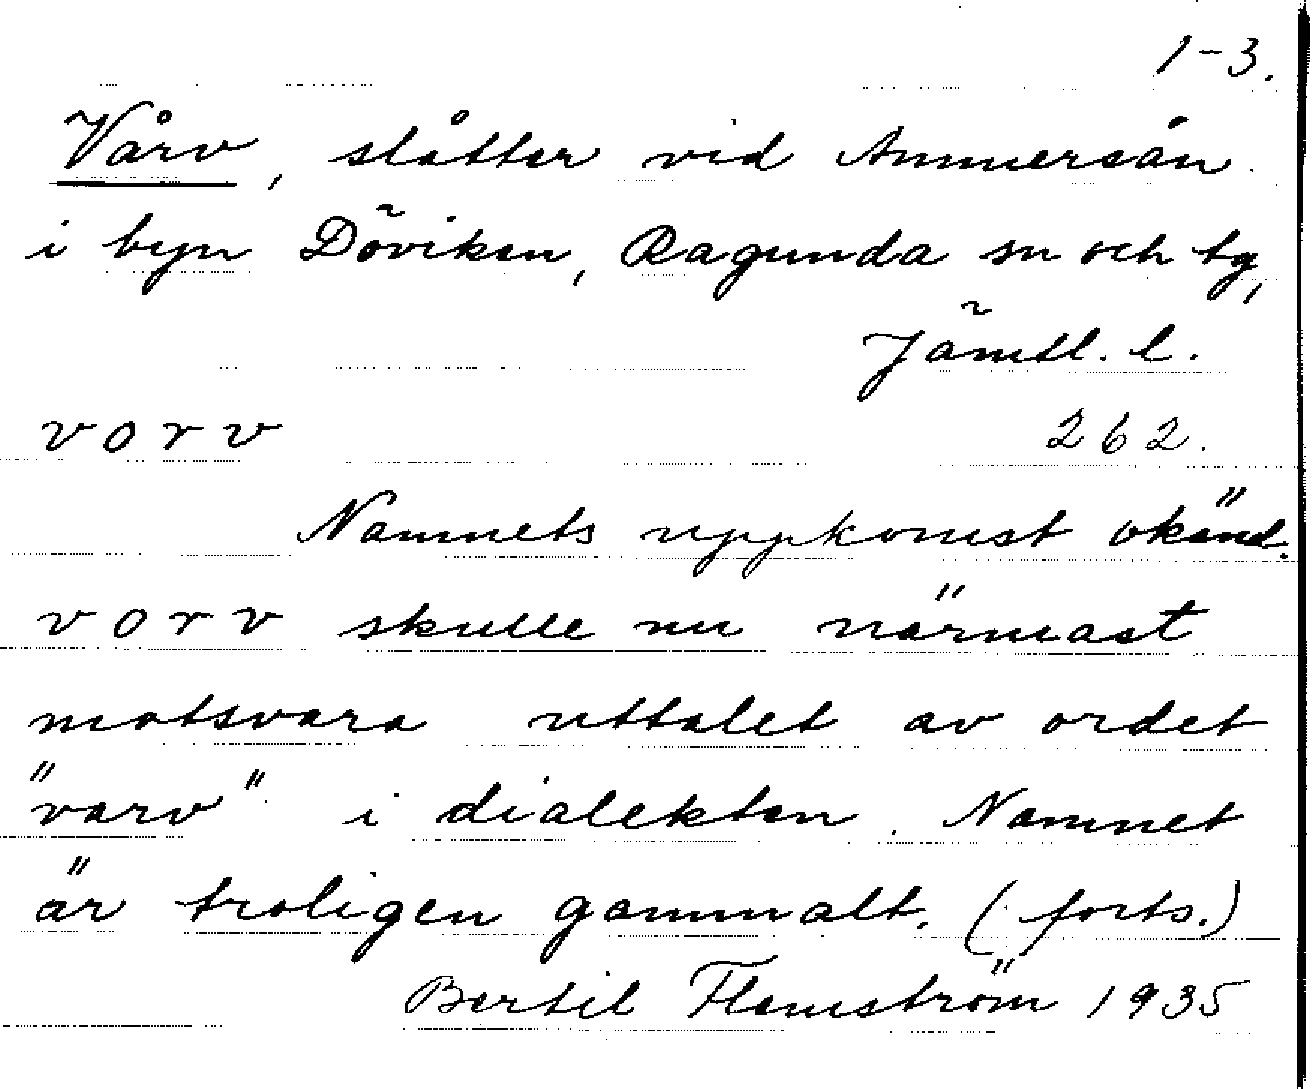 1-3.
Vårv, slåtter vid Ammerån
i byn Döviken, Ragunda sn och tg,
Jämtl. l.
vorv 262.
Namnets uppkomst okänd.
vorv skulle nu närmast
motsvara uttalet av ordet
"varv" i dialekten. Namnet
är troligen gammalt. (forts.)
Bertil Flemström 1935